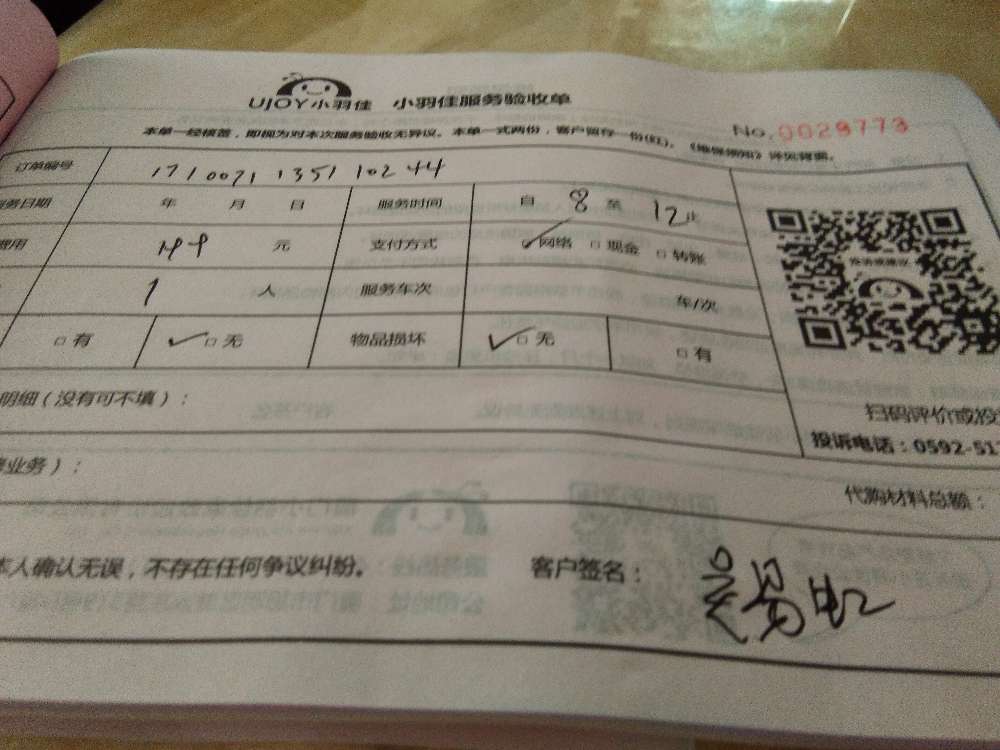 UJOY小羽佳 小羽佳服务验收单
No. 0029773
本单一经核签，即视为对本次服务验收无异议。本单一式两份，客户留存一份(红)。《维保须知》详见背面。
订单编号 1710071135110244
务日期 年 月 日 服务时间 自 8 至 12 止
费用 元 支付方式 ✓网络 □现金 □转账
1 人 服务车次 车/次
□有 ✓□无 物品损坏 ✓□无 □有
明细（没有可不填）：
扫码评价或投
投诉电话：0592-517
业务）：
代购材料总额：
本人确认无误，不存在任何争议纠纷。 客户签名：